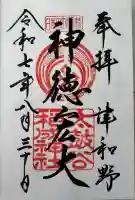 奉拝 津和野
神徳宏大
太鼓谷
稲成神社
令和七年八月三十日